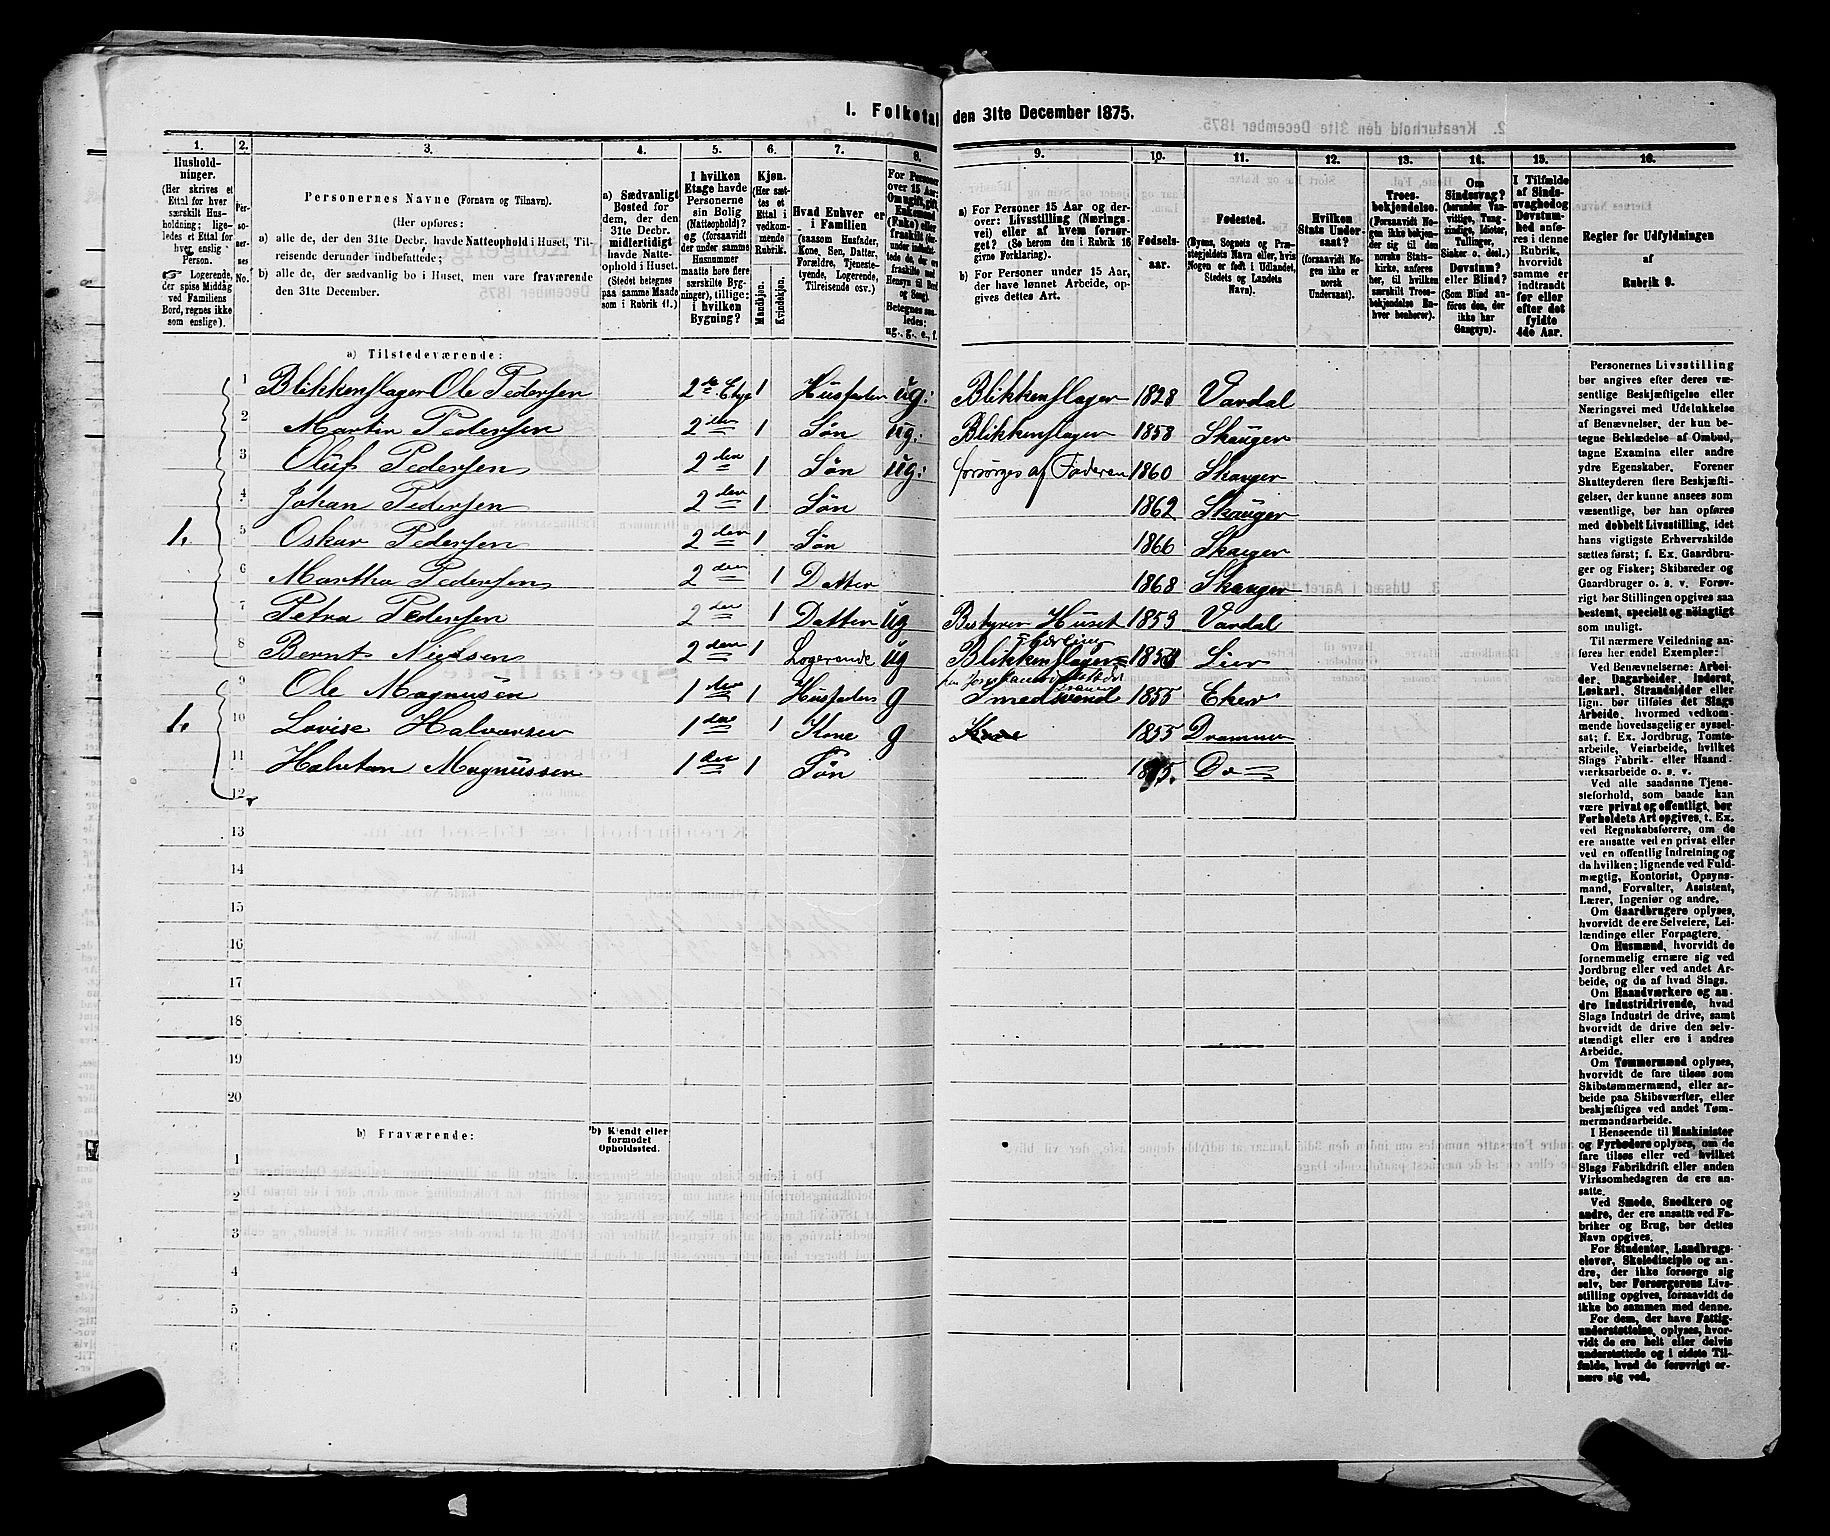 1. Folketal den 31te December 1875.
1. 2. 3. 4. 5. 6. 7. 8. 9. 10. 11. 12. 13. 14. 15. 16.
Husholdninger.
(Her skrives et
Ettal for hver
særskilt Husholdning;
ligeledes et Ettal for
hver enslig
Person.
Logerende,
der spise Middag
ved Familiens
Bord, regnes ikke
som enslige).
Personernes No.
Personernes Navne (Fornavn og Tilnavn).
(Her opføres:
a) alle de, der den 31te Decbr. havde Natteophold i Huset, Tilreisende
derunder indbefattede;
b) alle de, der sædvanlig bo i Huset, men vare fraværende
den 31te December.
a) Sædvanligt
Bosted for
dem, der den
31te Decbr.
midlertidigt
havde Natteophold
i Huset.
(Stedet betegnes
paa samme Maade
som i Rubrik 11.)
I hvilken
Etage havde
Personerne
sin Bolig
(Natteophold)?
og (forsaavidt
der under samme
Husnummer
maatte høre flere
særskilte Bygninger),
tillige:
i hvilken
Bygning?
Kjøn.
(Her sættes
et
Ettal i
vedkommende
Rubrik.
Mandkjøn.
Kvindekjøn.
Hvad Enhver er
i Familien
(saasom Husfader,
Kone, Søn, Datter,
Forældre, Tjenestetyende,
Logerende,
Tilreisende osv.)
For Personer
over 15 Aar:
Om ugift, gift,
Enkemand
(Enke) eller
fraskilt
Betegnes saaledes:
ug., g., e., f.
a) For Personer 15 Aar og derover:
Livsstilling (Næringsvei)
eller af hvem forsørget?
(Se herom den i Rubrik 16
givne Forklaring).
b) For Personer under 15 Aar,
der have lønnet Arbeide, opgives
dettes Art.
Fødselsaar.
Fødested.
(Byens, Sognets og Præstegjeldets
Navn eller, hvis
Nogen er født i Udlandet,
Stedets og Landets
Navn).
Hvilken
Stats Undersaat?
(forsaavidt Nogen
ikke er
norsk
Undersaat).
Troesbekjendelse.
(Forsaavidt Nogen
ikke bekjender
sig til den
norske Statskirke,
anføres
her, til hvilken
særskilt Troesbekjendelse
Enhver
henhører).
Om
Sindssvag?
(herunder Vanvittige,
Tungsindige,
Idioter,
Tullinger,
Sinker o. desl.)
Døvstum?
eller Blind?
(Som Blind anføres
den, der
ikke har
Gangsyn).
I Tilfælde
af Sindssvaghed
og
Døvstumhed
anføres
i denne
Rubrik,
hvorvidt
samme er
indtraadt
før eller
efter det
fyldte
4de Aar.
Regler for Udfyldningen
af
Rubrik 9.
a) Tilstedeværende:
1 Blikkenslager Ole Pedersen 2de Etge 1 Husfader ug: Blikkenslager 1828 Vardal
2 Martin Pedersen 2den 1 Søn ug: Blikkenslager 1858 Skauger
3 Oluf Pedersen 2den 1 Søn ug: forsørges af Faderen 1860 Skauger
4 Johan Pedersen 2den 1 Søn 1862 Skauger
1. 5 Oskar Pedersen 2den 1 Søn 1866 Skauger
6 Martha Pedersen 2den 1 Datter 1868 Skauger
7 Petra Pedersen 2den 1 Datter ug Bestyrer Huset 1853 Vardal
8 Bernt Nielsen 2den 1 Logerende ug Blikkenslager Lærling Lier
9 Ole Magnusen 1den 1 Husfader g Smedsvend 1855 Eker
1. 10 Lovise Halvorsen 1den 1 Kone g 1855 Drammen
11 Halvtan Magnussen 1den 1 Søn 1875. Do
12
13
14
15
16
17
18
19
20
b) Fraværende:
b) Kjendt eller
formodet
Opholdssted.
1
2
3
4
5
6
Personernes Livsstilling
bør angives efter deres væsentlige
Beskjæftigelse eller
Næringsvei med Udelukkelse
af Benævnelser, der kun betegne
Beklædelse af Ombud,
tagne Examina eller andre
ydre Egenskaber. Forener
Skatteyderen flere Beskjæftigelser,
der kunne ansees som
væsentlige, bør han opføres
med dobbelt Livsstilling, idet
hans vigtigste Erhvervskilde
sættes først; f. Ex. Gaardbruger
og Fisker; Skibsreder og
Gaardbruger o. s. v. Forøvrigt
bør Stillingen opgives saa
bestemt, specielt og nøiagtigt
som muligt.
Til nærmere Veiledning anføres
her endel Exempler:
Ved Benævnelserne: Arbeider,
Dagarbeider, Inderst,
Løskarl, Strandsidder eller
lign. bør tilføies det Slags
Arbeide, hvormed vedkommende
hovedsagelig er sysselsat;
f. Ex. Jordbrug, Tomtearbeide,
Veiarbeide, hvilket
Slags Fabrik- eller Haandværksarbeide
o. s. v.
Ved alle saadanne Tjenesteforhold,
som baade kan
være privat og offentligt, bør
Forholdets Art opgives, t. Ex.
ved Regnskabsførere, om de
ere ansatte ved en privat eller
ved en offentlig Indretning og
da hvilken; lignende ved Fuldmægtig,
Kontorist, Opsynsmand,
Forvalter, Assistent,
Lærer, Ingeniør og andre.
Om Gaardbrugere oplyses,
hvorvidt de ere Selveiere, Leilændinge
eller Forpagtere.
Om Husmænd, hvorvidt de
fornemmelig ernære sig ved
Jordbrug eller ved andet Arbeide,
og da af hvad Slags.
Om Haandværkere og andre
Industridrivende, hvad
Slags Industri de drive, samt
hvorvidt de drive den selvstændigt
eller ere i andres
Arbeide.
Om Tømmermænd oplyses,
hvorvidt de fare tilsøs som
Skibstømmermænd, eller arbeide
paa Skibsværfter, eller
beskjæftiges ved andet Tømmermandsarbeide.
I Henseende til Maskinister
og Fyrbødere oplyses, om de
fare tilsøs eller ved hvilket
Slags Fabrikdrift eller anden
Virksomhedsgren de ere ansatte.
Ved Smede, Snedkere og
andre, der ere ansatte ved Fabriker
og Brug, bør dettes
Navn opgives.
For Studenter, Landbrugselever,
Skoledisciple og andre,
der ikke forsørge sig
selv, bør Forsørgerens Livsstilling
opgives, forsaavidt de
ikke bo sammen med denne.
For dem, der have Fattigunderstøttelse,
oplyses, hvorvidt
de ere helt eller delvis
understøttede og i sidste Tilfælde,
hvad de forøvrigt ernære
sig ved.